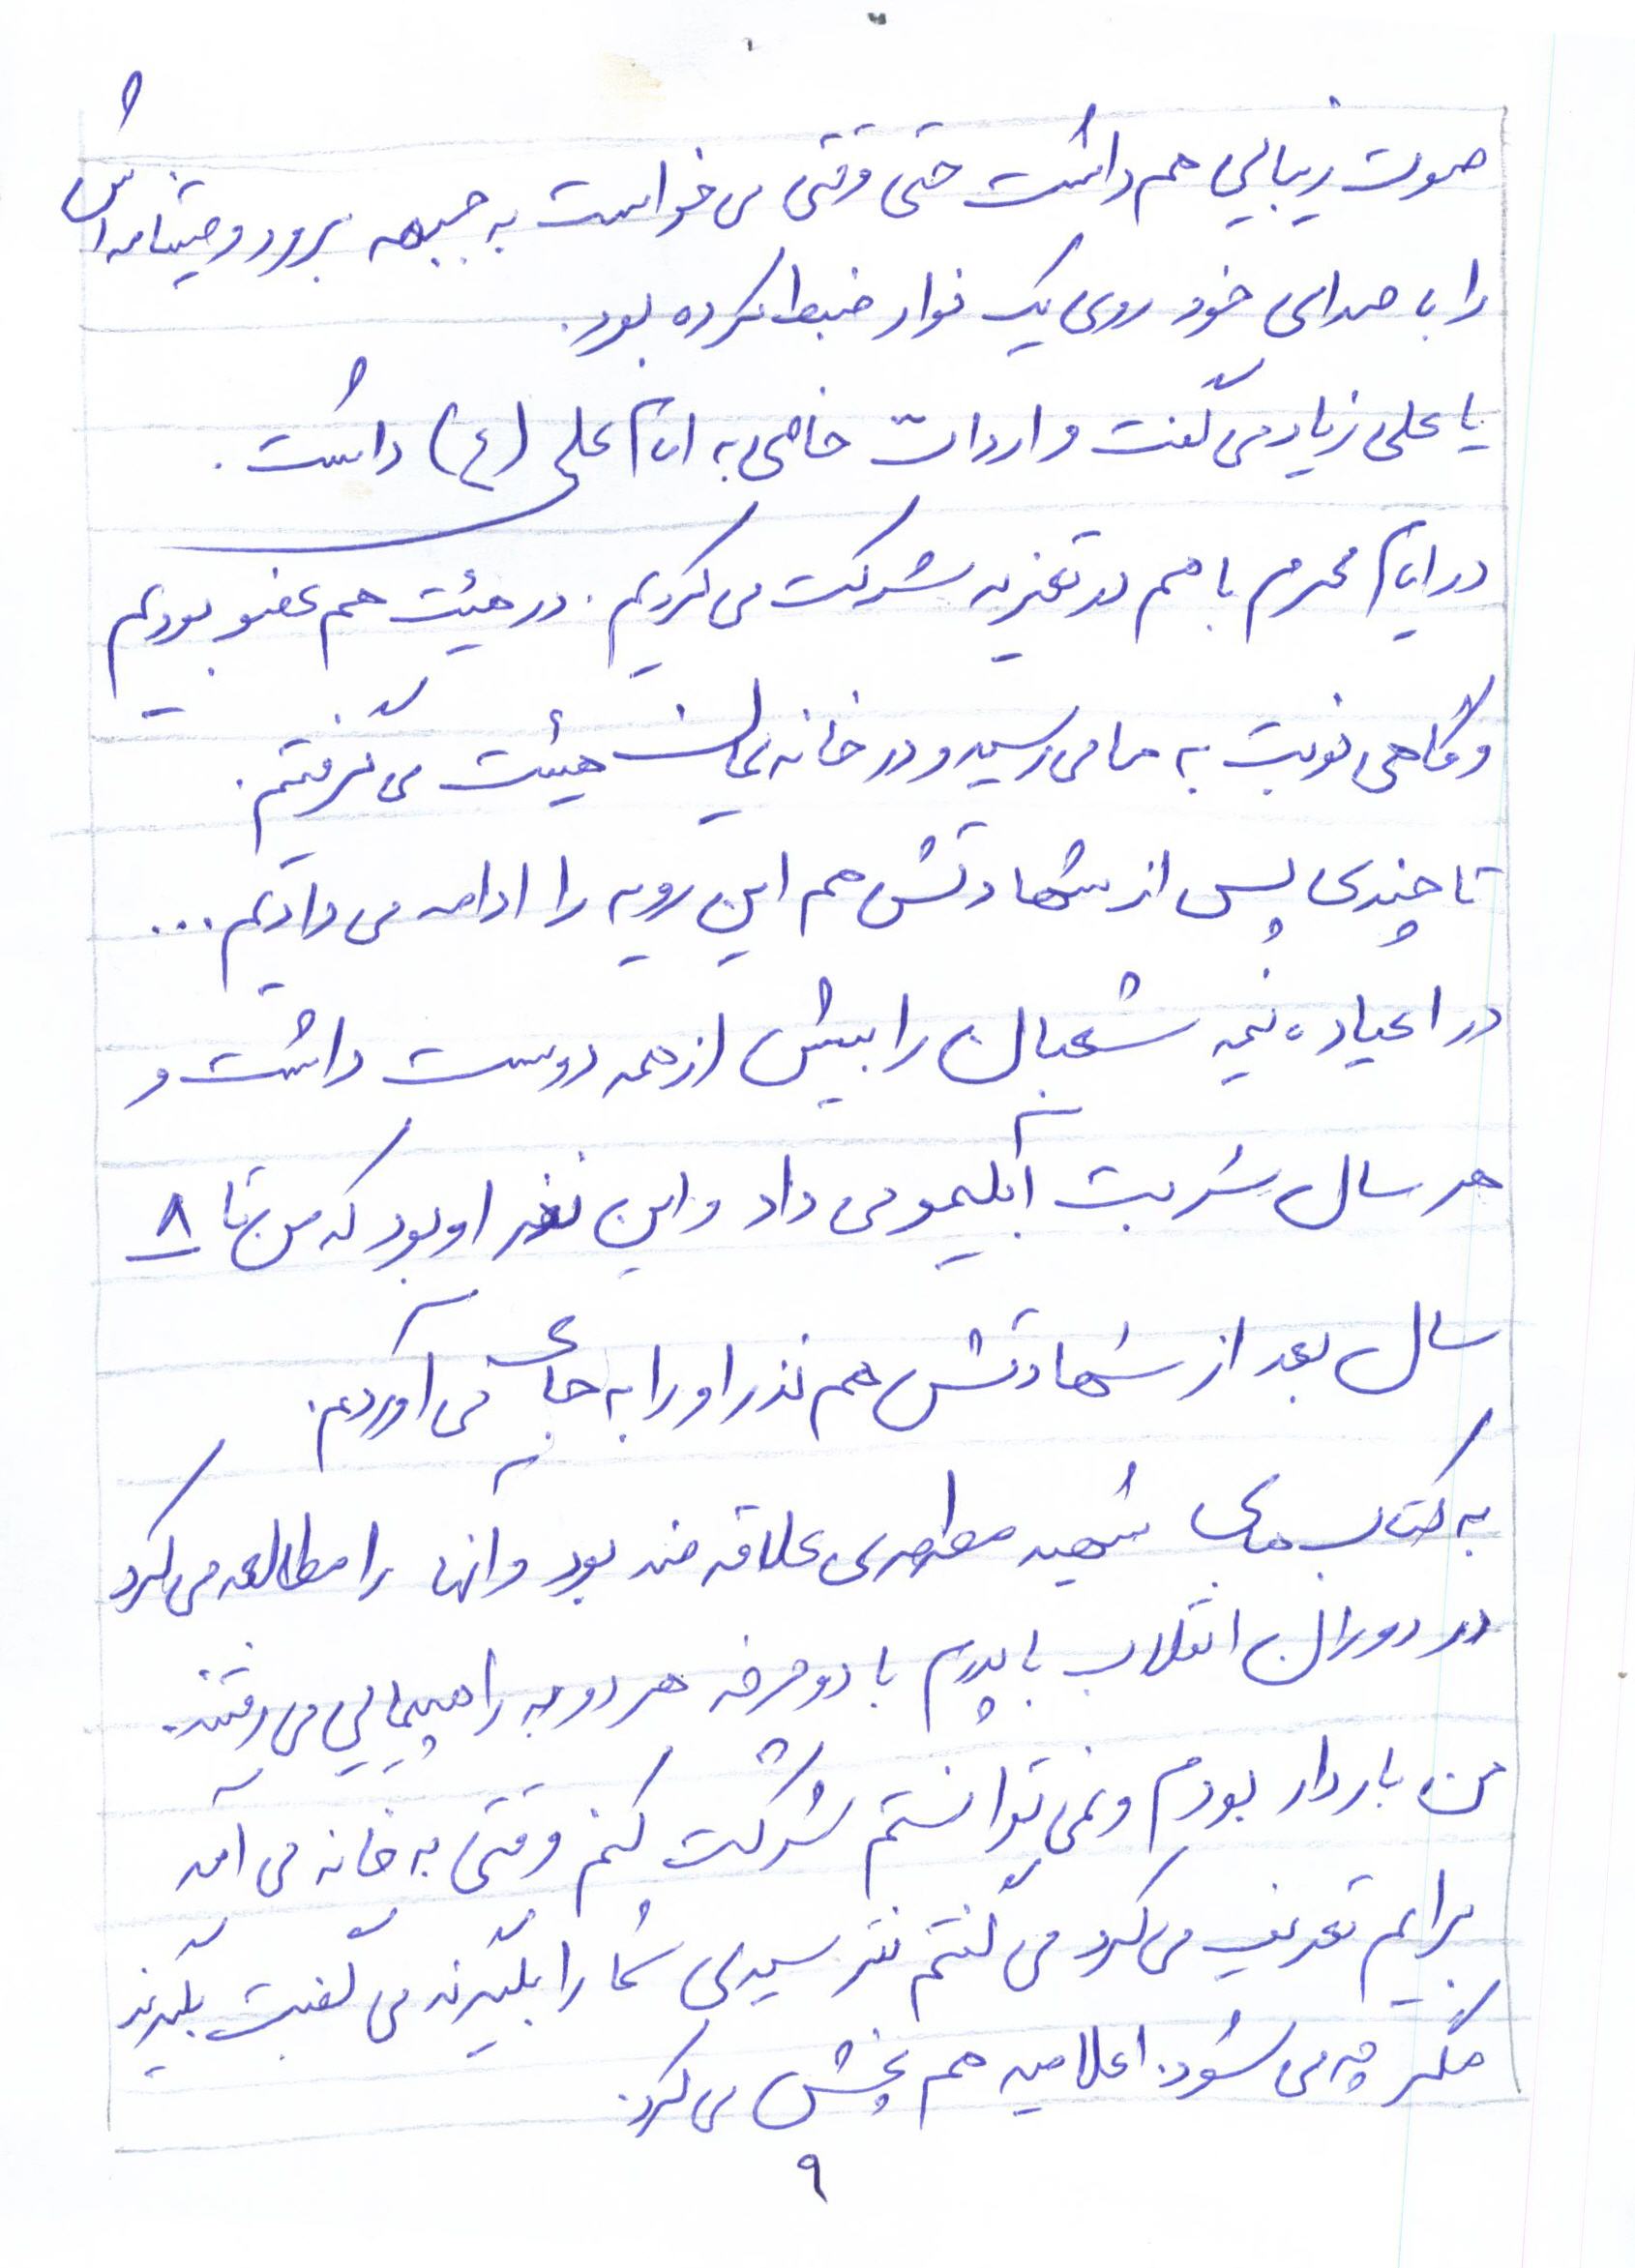 صوت زیبایی هم داشت حتی وقتی می خواست به جبهه برود وصیتنامه اش
را با صدای خود روی یک نوار ضبط کرده بود.
یا علی زیاد می گفت و ارادت خاصی به امام علی (ع) داشت.
در ایام محرم با هم در تعزیه شرکت می کردیم. در هیئت هم عضو بودیم
و گاهی نوبت به ما می رسید و در خانه یمان هیئت می گرفتیم.
تا چندی پس از شهادتش هم این رویه را ادامه می دادیم ...
در اعیاد، نیمه شعبان را بیش از همه دوست داشت و
هر سال شربت آبلیمو می داد و این نذر او بود که من تا ۸
سال بعد از شهادتش هم نذر او را به جای می آوردم.
به کتاب های شهید مطهری علاقه مند بود و آنها را مطالعه می کرد
در دوران انقلاب با پدرم با دوچرخه هر دو به راهپیمایی می رفتند.
من باردار بودم و نمی توانستم شرکت کنم وقتی به خانه می آمد
برایم تعریف می کرد می گفتم نترسیدی شما را بگیرند می گفت بگیرند
مگر چه می شود. اعلامیه هم پخش می کرد.
۹